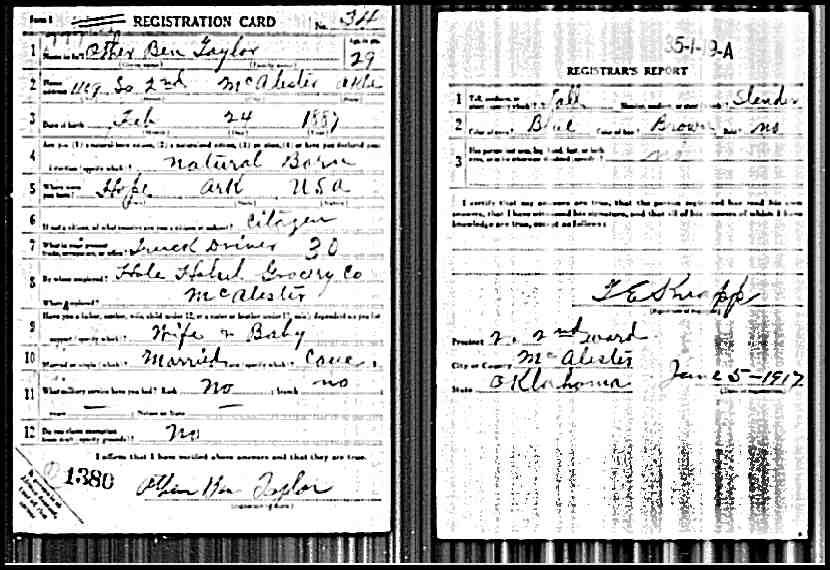 Form 1 REGISTRATION CARD No. 34
1 Name in full Other Ben Taylor Age, in yrs. 29
(Given name) (Family name)
2 Home address So 2nd McAlester Okla
3 Date of birth Feb 24 1887
4 Are you (1) a natural-born citizen, (2) a naturalized citizen, (3) an alien, (4) or have you declared your
intention (specify which)? natural Born
5 Where were you born? Hope Ark USA
6 If not a citizen, of what country are you a citizen or subject? citizen
7 What is your present trade, occupation, or office? Truck Driver 30
8 By whom employed? Hale Grocery Co
Where employed? McAlester
9 Have you a father, mother, wife, child under 12, or a sister or brother under 12, solely dependent on you for
support (specify which)? Wife & Baby
10 Married or single (which)? Married Race (specify which)?
11 What military service have you had? Rank No ; branch no
years — ; Nation or State —
12 Do you claim exemption from draft (specify grounds)? No
I affirm that I have verified above answers and that they are true.
1380
Ben Taylor
35-1-9-A
REGISTRAR'S REPORT
1 Tall, medium, or short (specify which)? Tall Slender, medium, or stout (which)? Slender
2 Color of eyes? Blue Color of hair? Brown Bald? no
3 Has person lost arm, leg, hand, foot, or both
eyes, or is he otherwise disabled (specify)? no
I certify that my answers are true, that the person registered has read his own
answers, that I have witnessed his signature, and that all of his answers of which I have
knowledge are true, except as follows:
T E Knapp
(Signature of registrar)
Precinct 2, 2nd ward
City or County McAlester
State Oklahoma June 5-1917
(Date of registration)